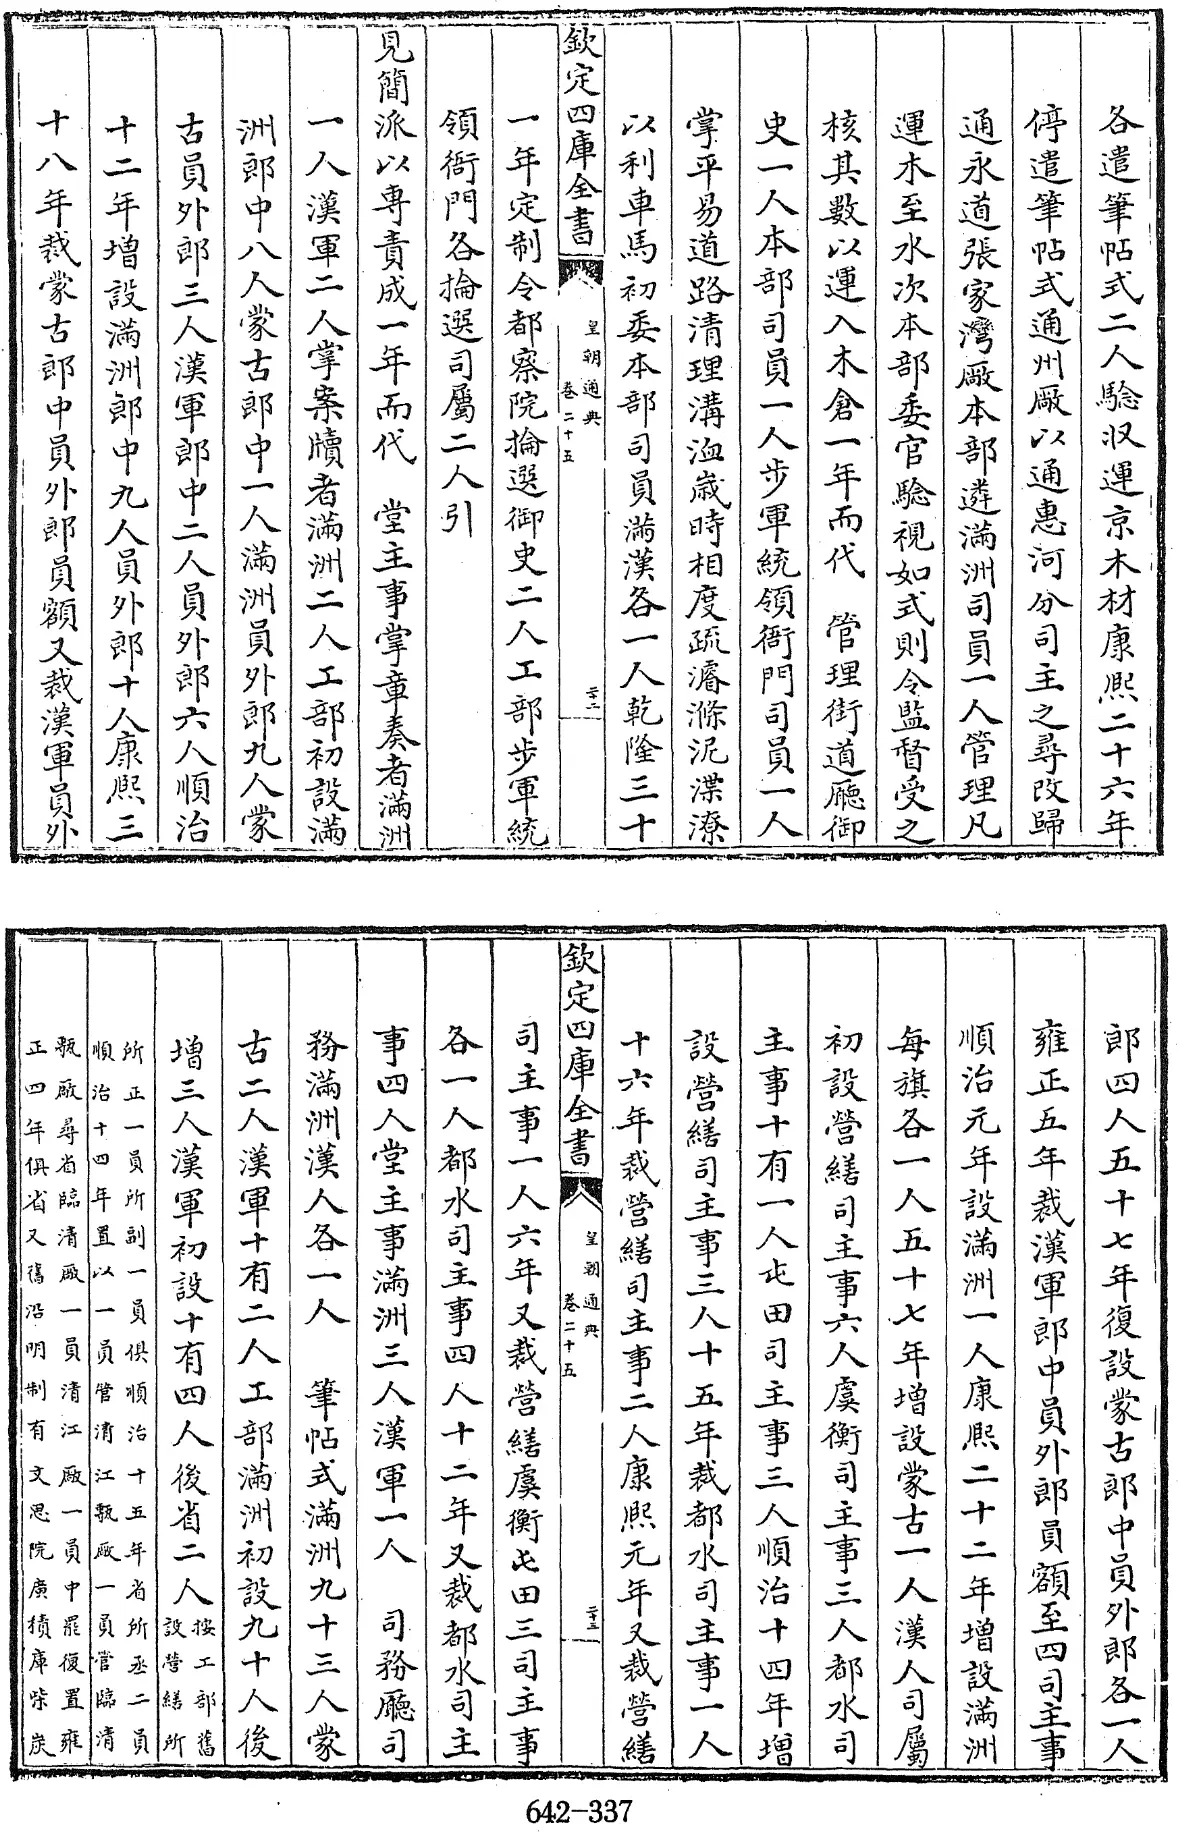 各遣筆帖式二人驗収運京木材康熙二十六年
停遣筆帖式通州廠以通惠河分司主之尋改歸
通永道張家灣廠本部遴滿洲司員一人管理凡
運木至水次本部委官驗視如式則令監督受之
核其數以運入木倉一年而代　管理街道廳御
史一人本部司員一人步軍統領衙門司員一人
掌平易道路清理溝洫歲時相度疏濬滌泥渫潦
以利車馬初委本部司員滿漢各一人乾隆三十
欽定四庫全書
皇朝通典
卷二十五
二十二
一年定制令都察院掄選御史二人工部步軍統
領衙門各掄選司屬二人引
見簡派以專責成一年而代　堂主事掌章奏者滿洲
一人漢軍二人掌案牘者滿洲二人工部初設滿
洲郎中八人蒙古郎中一人滿洲員外郎九人蒙
古員外郎三人漢軍郎中二人員外郎六人順治
十二年增設滿洲郎中九人員外郎十人康熙三
十八年裁蒙古郎中員外郎員額又裁漢軍員外
郎四人五十七年復設蒙古郎中員外郎各一人
雍正五年裁漢軍郎中員外郎員額至四司主事
順治元年設滿洲一人康熙二十二年增設滿洲
每旗各一人五十七年增設蒙古一人漢人司屬
初設營繕司主事六人虞衡司主事三人都水司
主事十有一人屯田司主事三人順治十四年增
設營繕司主事三人十五年裁都水司主事一人
十六年裁營繕司主事二人康熙元年又裁營繕
欽定四庫全書
皇朝通典
卷二十五
二十三
司主事一人六年又裁營繕虞衡屯田三司主事
各一人都水司主事四人十二年又裁都水司主
事四人堂主事滿洲三人漢軍一人　司務廳司
務滿洲漢人各一人　筆帖式滿洲九十三人蒙
古二人漢軍十有二人工部滿洲初設九十人後
增三人漢軍初設十有四人後省二人
按工部舊
設營繕所
所正一員所副一員俱順治十五年省所丞二員
順治十四年置以一員管清江甎廠一員管臨清
甎廠尋省臨清廠一員清江廠一員中罷復置雍
正四年俱省又舊沿明制有文思院廣積庫柴炭
642-337